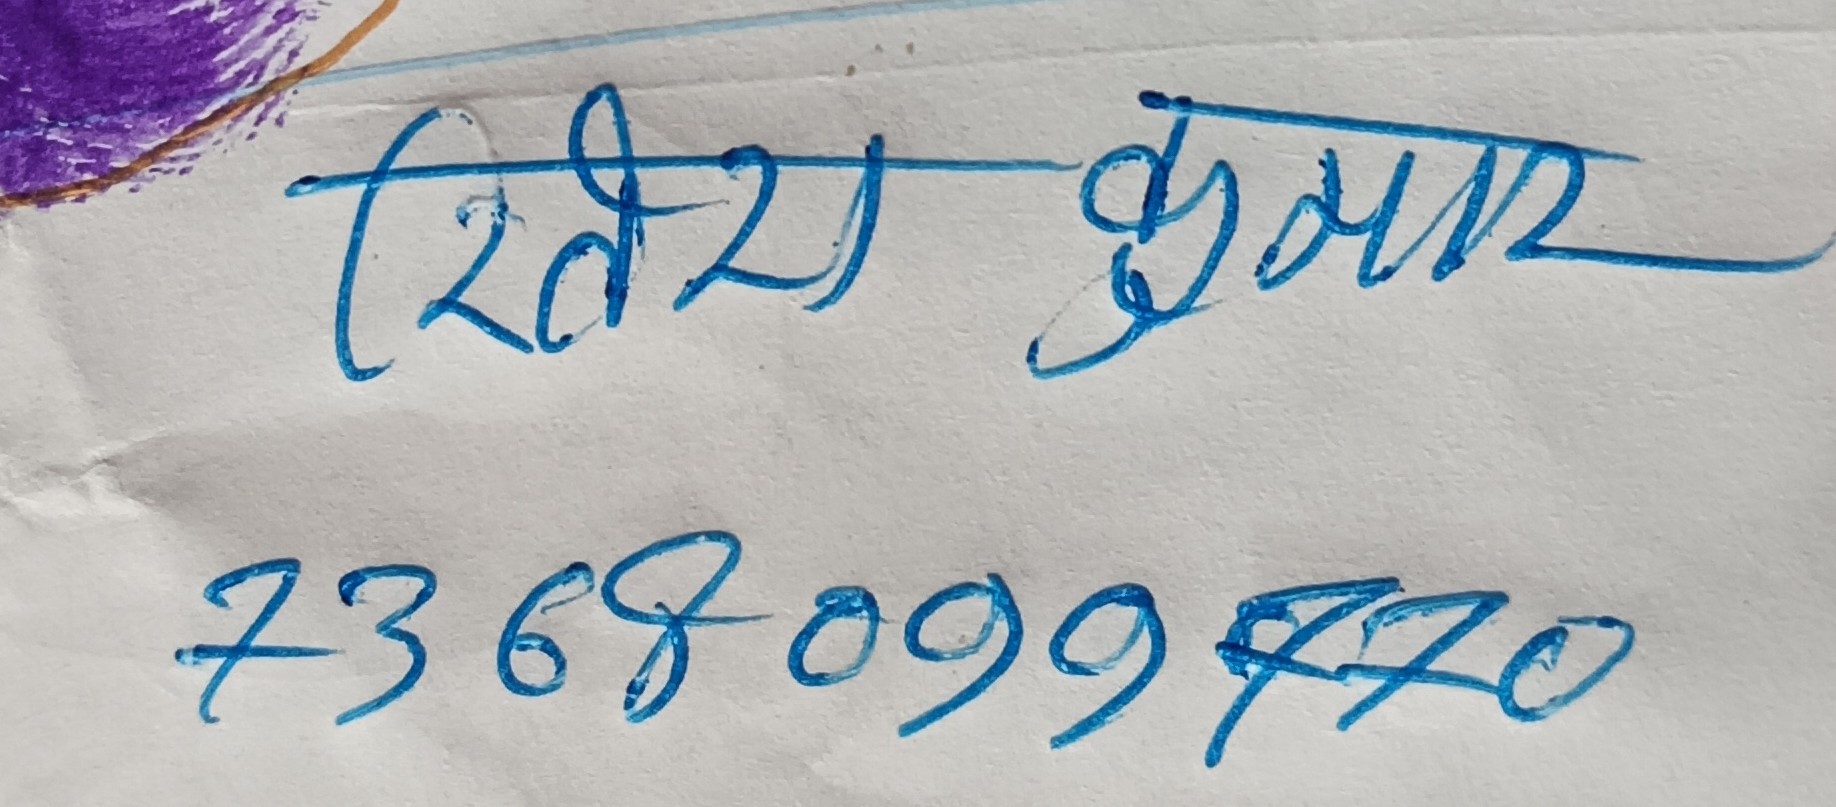 रितेश कुमार
7368099770